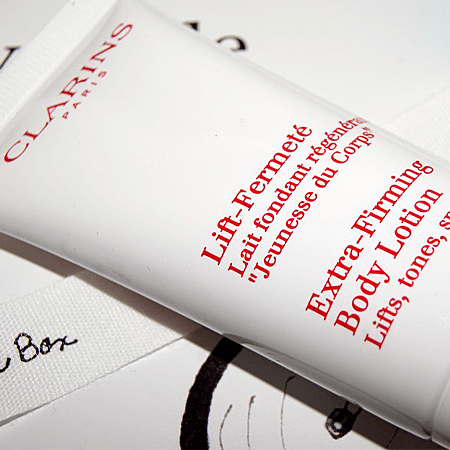 CLARINS
PARIS
Lift-Fermeté
Lait fondant régénéra
"Jeunesse du Corps"
Extra-Firming
Body Lotion
Lifts, tones,
Box